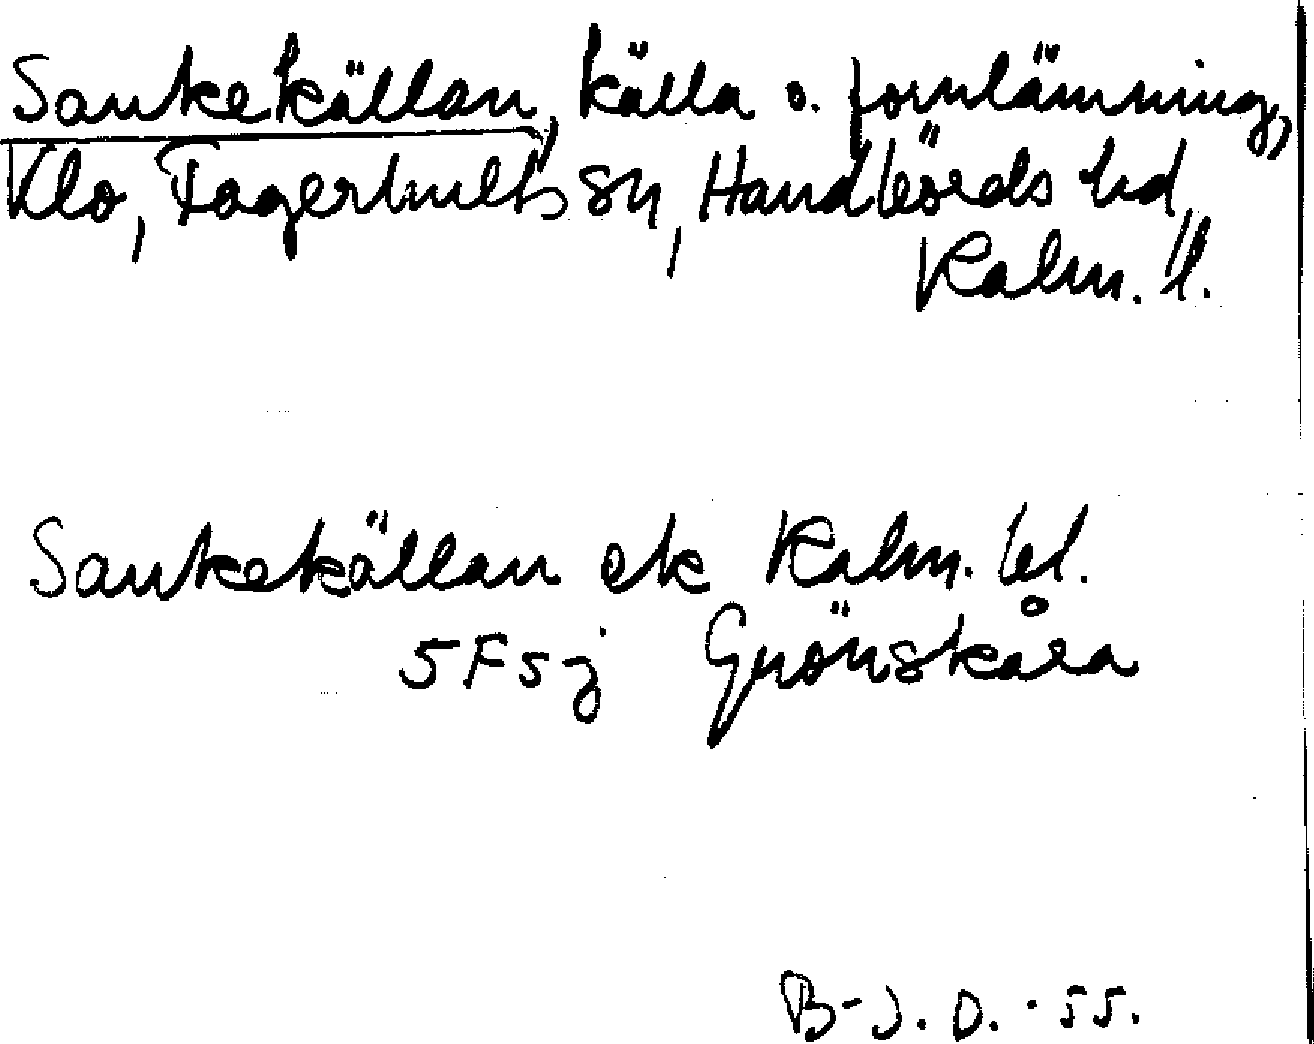 Sankekällan, källa o. fornlämning,
Klo, Fagerhults sn, Handbörds hd,
Kalm. l.
Sankekällan ek Kalm. bl.
5F5j Grönskåra
B-J.D. -55.